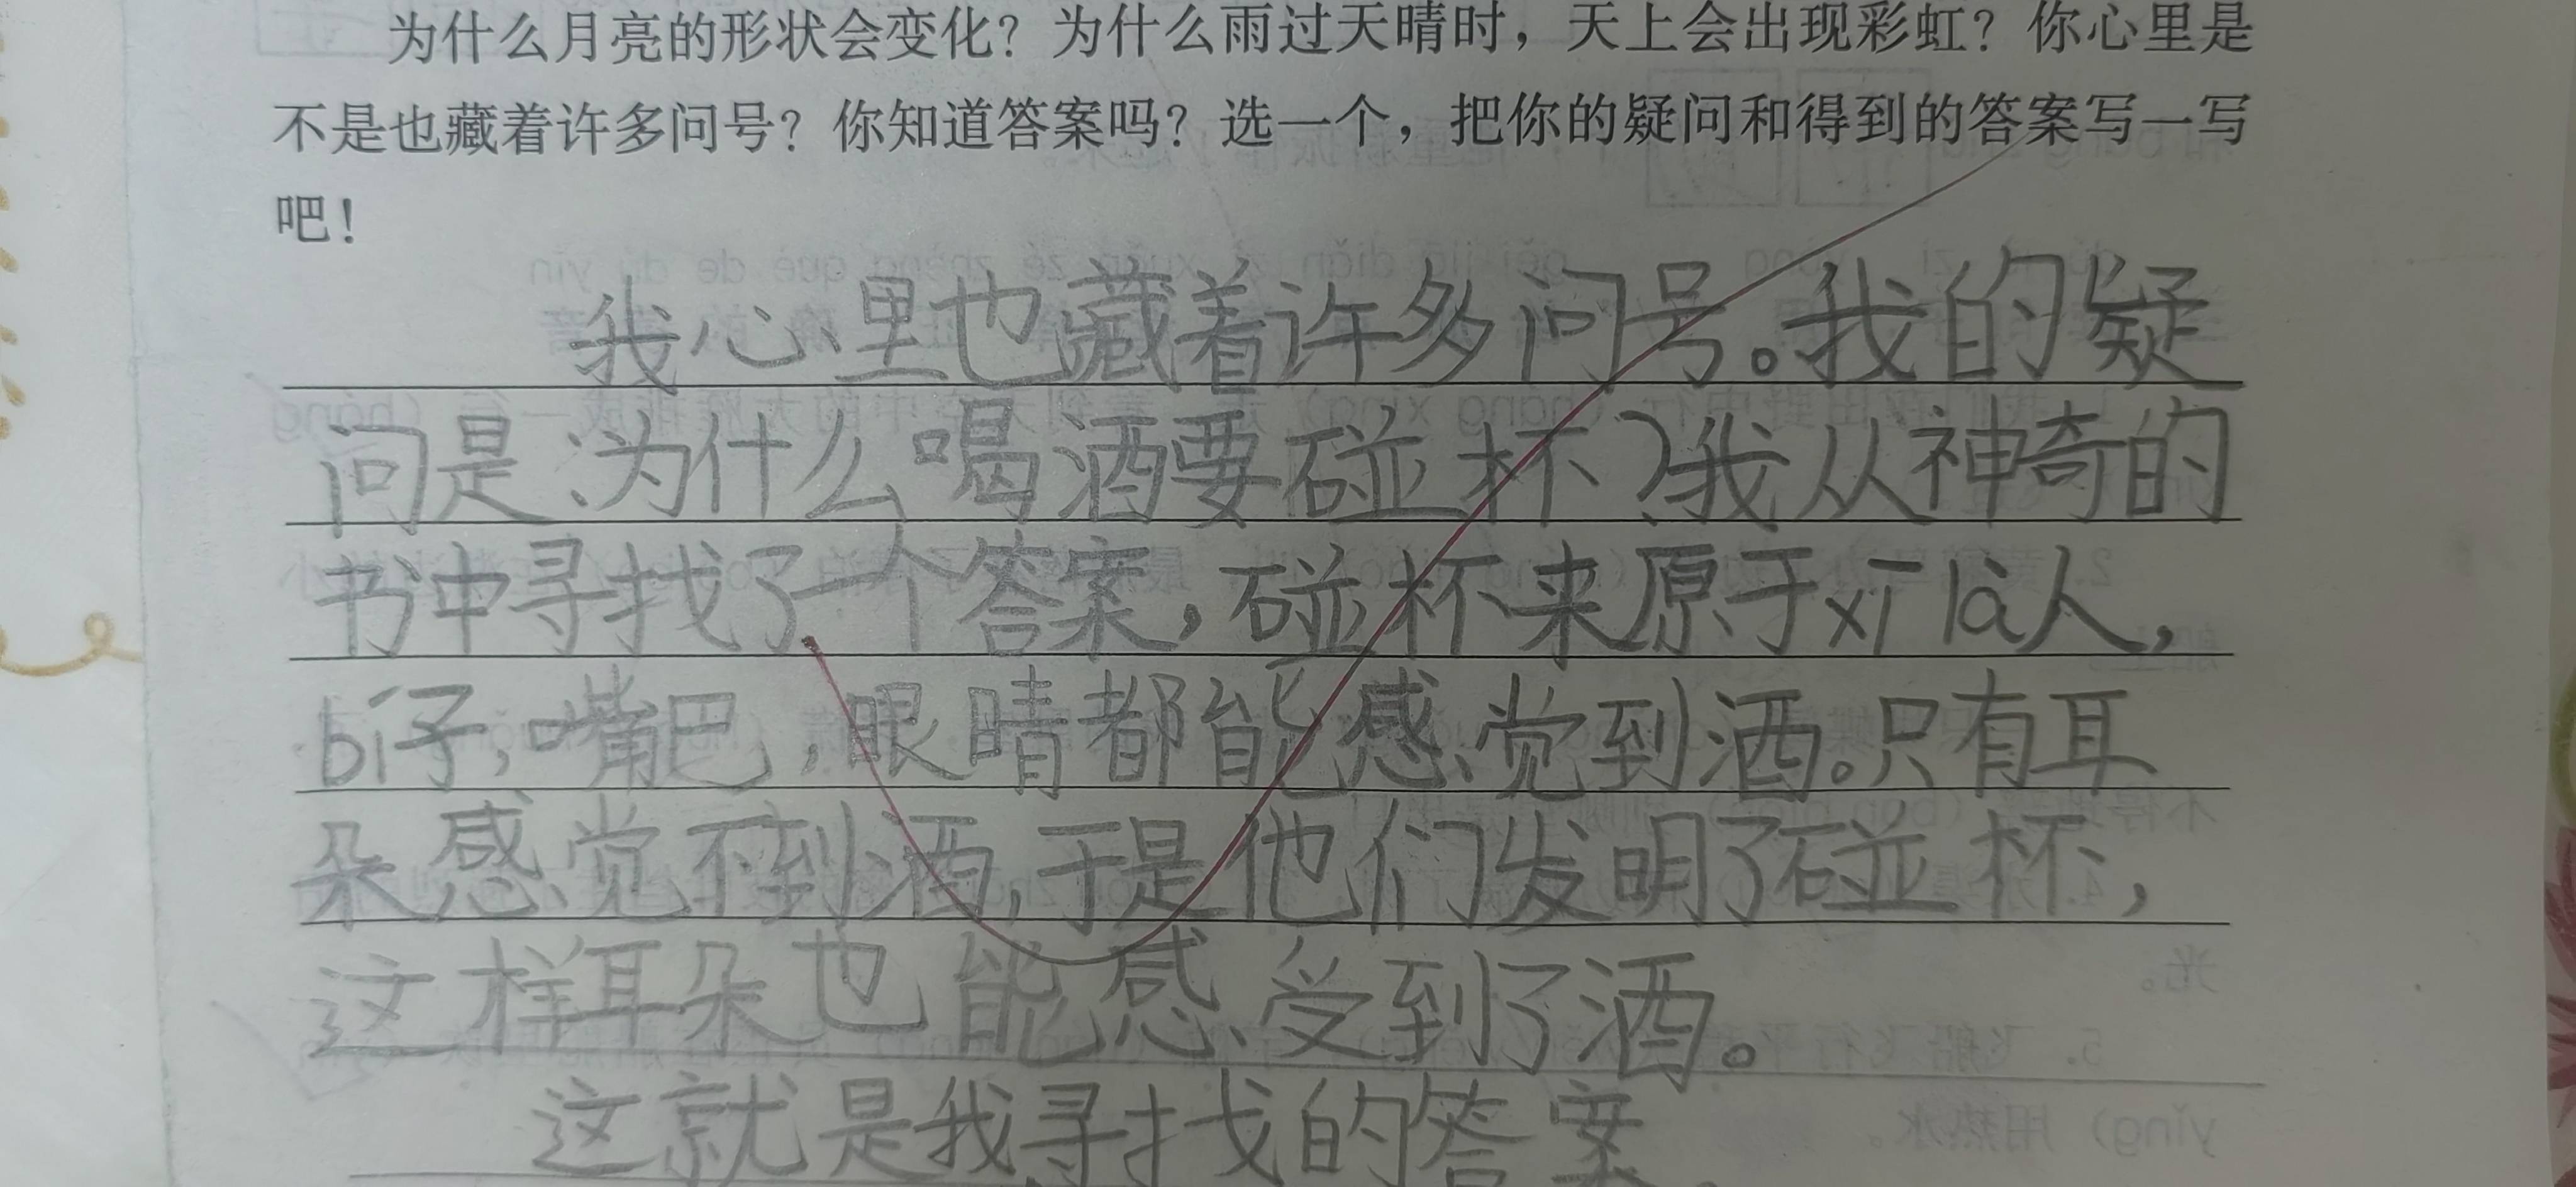 为什么月亮的形状会变化？为什么雨过天晴时，天上会出现彩虹？你心里是
不是也藏着许多问号？你知道答案吗？选一个，把你的疑问和得到的答案写一写
吧！
我心里也藏着许多问号。我的疑
问是：为什么喝酒要碰杯？我从神奇的
书中寻找了一个答案，碰杯来原于xī là人，
bí子，嘴巴，眼睛都能感觉到酒。只有耳
朵感觉不到酒，于是他们发明了碰杯，
这样耳朵也能感受到了酒。
这就是我寻找的答案。